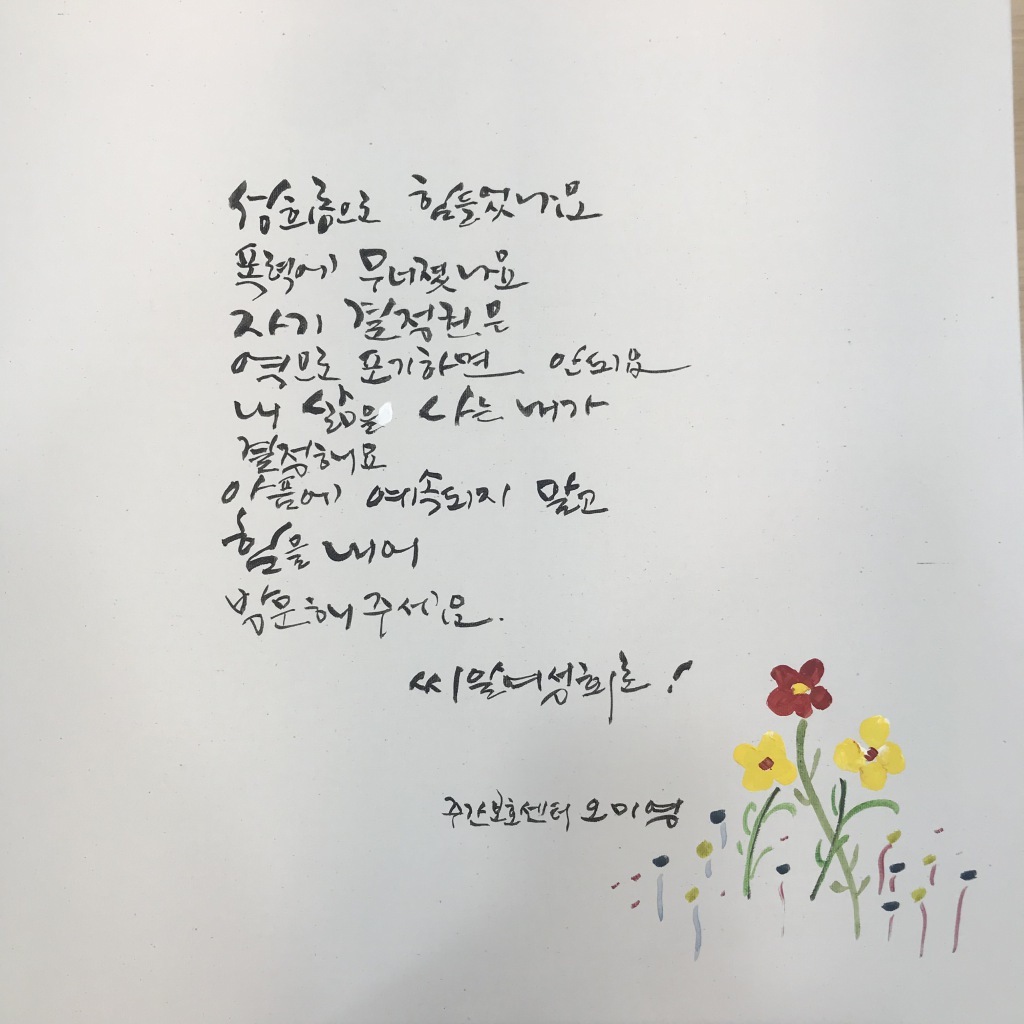 성희롱으로 힘들었나요
폭력에 무너졌나요
자기 결정권은
역으로 포기하면 안되요
내 삶을 사는 내가
결정해요
아픔에 예속되지 말고
힘을 내어
방문해 주세요.
씨알여성회로!
주간보호센터 오미영